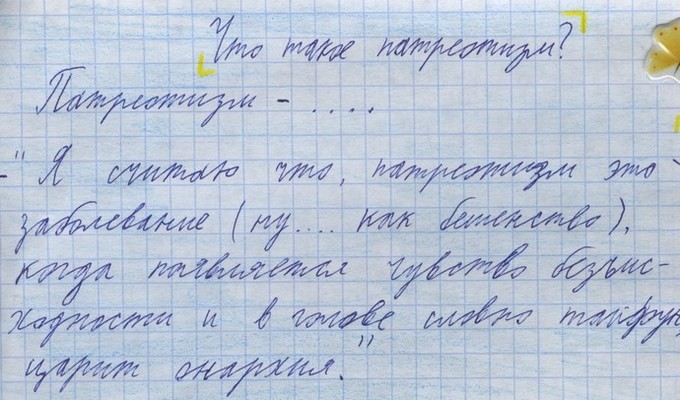 Что такое патреотизм?
Патреотизм - ....
-" Я считаю что, патреотизм это -
заболевание (ну.... как бешенство),
когда паявляется чувство безыс-
ходности и в голове словно тайфун,
царит анархия."